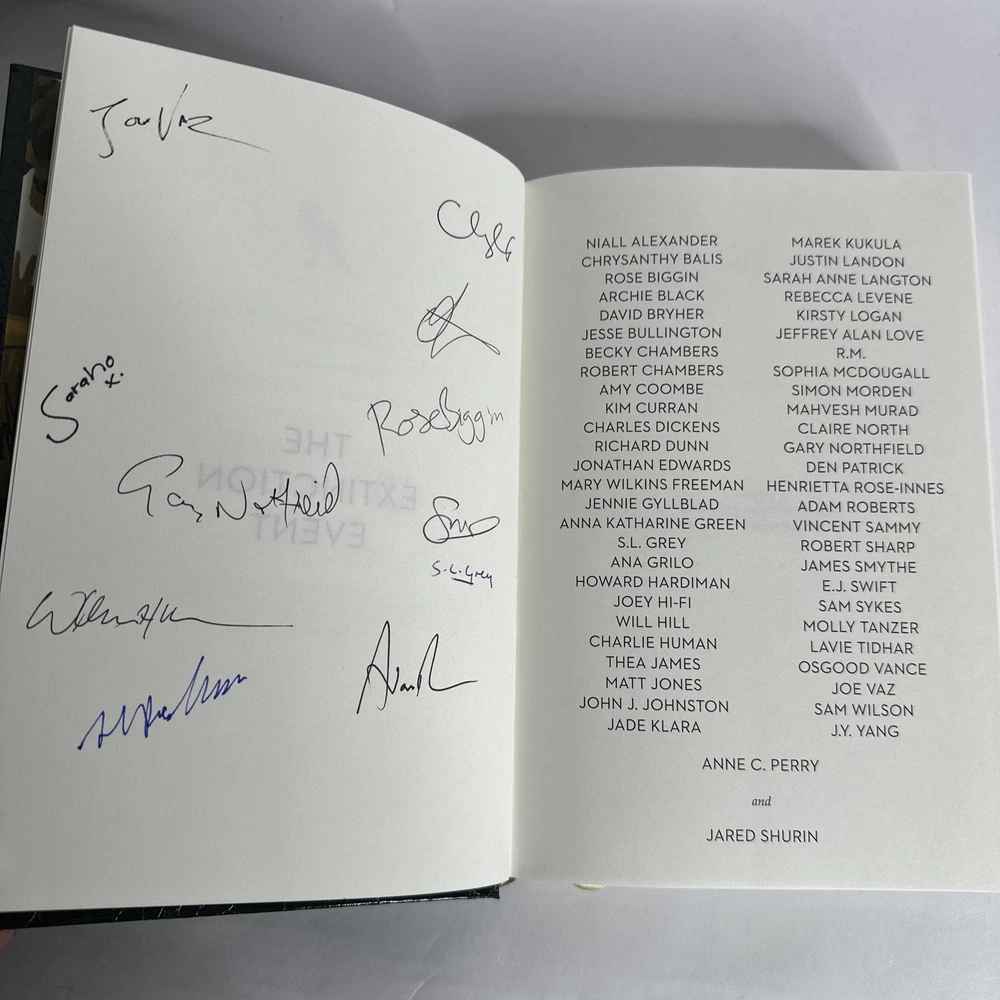 Joe Vaz
Saraho
x.
Rose Biggin
Gary Northfield
S.L. Grey
THE
EXTINCTION
EVENT
NIALL ALEXANDER
CHRYSANTHY BALIS
ROSE BIGGIN
ARCHIE BLACK
DAVID BRYHER
JESSE BULLINGTON
BECKY CHAMBERS
ROBERT CHAMBERS
AMY COOMBE
KIM CURRAN
CHARLES DICKENS
RICHARD DUNN
JONATHAN EDWARDS
MARY WILKINS FREEMAN
JENNIE GYLLBLAD
ANNA KATHARINE GREEN
S.L. GREY
ANA GRILO
HOWARD HARDIMAN
JOEY HI-FI
WILL HILL
CHARLIE HUMAN
THEA JAMES
MATT JONES
JOHN J. JOHNSTON
JADE KLARA
MAREK KUKULA
JUSTIN LANDON
SARAH ANNE LANGTON
REBECCA LEVENE
KIRSTY LOGAN
JEFFREY ALAN LOVE
R.M.
SOPHIA MCDOUGALL
SIMON MORDEN
MAHVESH MURAD
CLAIRE NORTH
GARY NORTHFIELD
DEN PATRICK
HENRIETTA ROSE-INNES
ADAM ROBERTS
VINCENT SAMMY
ROBERT SHARP
JAMES SMYTHE
E.J. SWIFT
SAM SYKES
MOLLY TANZER
LAVIE TIDHAR
OSGOOD VANCE
JOE VAZ
SAM WILSON
J.Y. YANG
ANNE C. PERRY
and
JARED SHURIN